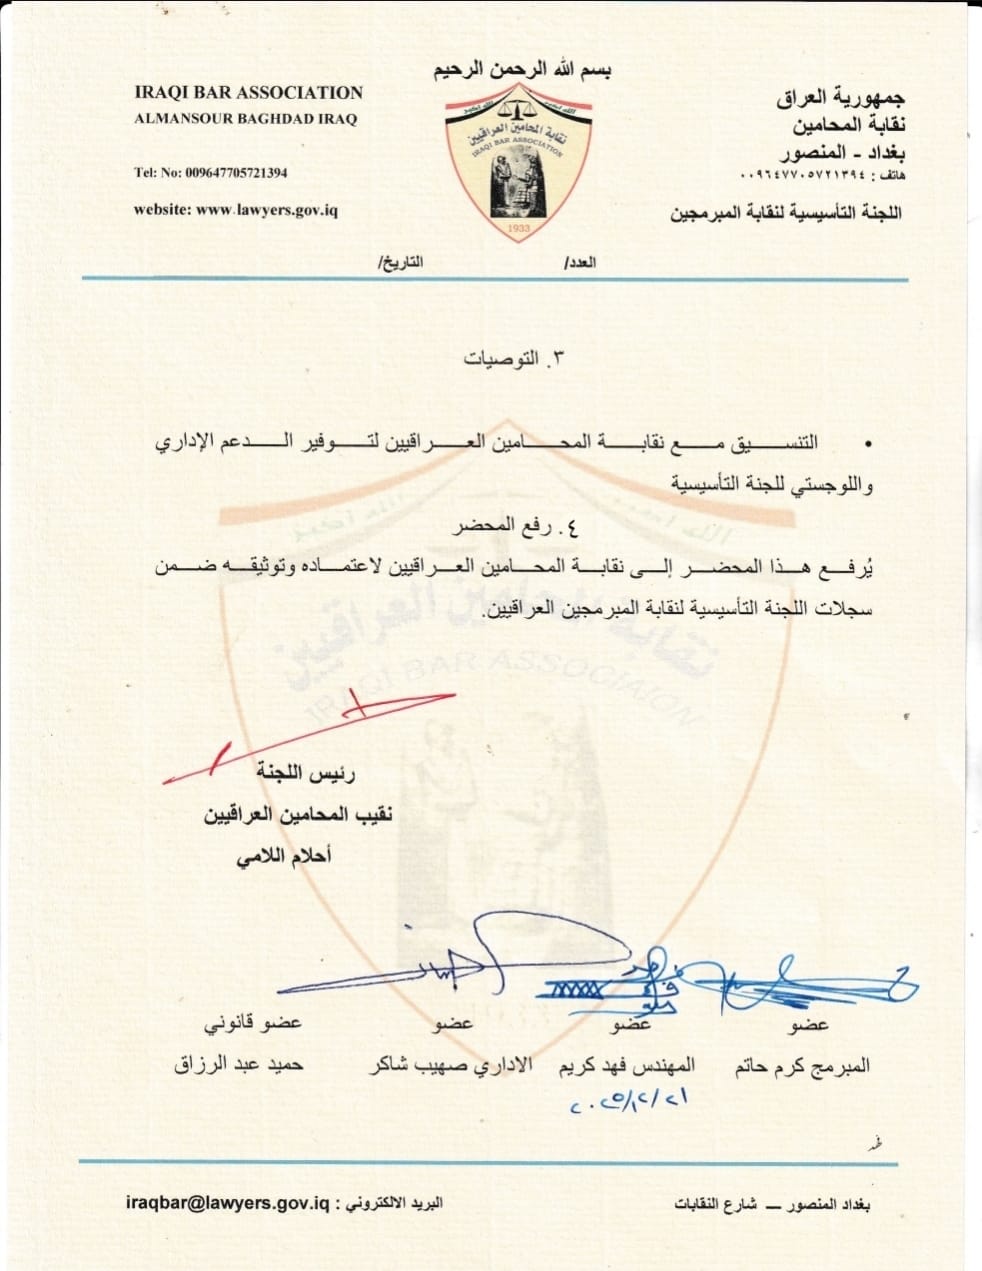 بسم الله الرحمن الرحيم
IRAQI BAR ASSOCIATION
ALMANSOUR BAGHDAD IRAQ
Tel: No: 009647705721394
website: www.lawyers.gov.iq
الله اكبر
الله اكبر
نقابة المحامين العراقيين
IRAQI BAR ASSOCIATION
1933
جمهورية العراق
نقابة المحامين
بغداد - المنصور
هاتف : ٠٠٩٦٤٧٧٠٥٧٢١٣٩٤
اللجنة التأسيسية لنقابة المبرمجين
العدد/ التاريخ/
٣. التوصيات
• التنسيق مع نقابة المحامين العراقيين لتوفير الدعم الإداري
واللوجستي للجنة التأسيسية
٤. رفع المحضر
يُرفع هذا المحضر إلى نقابة المحامين العراقيين لاعتماده وتوثيقه ضمن
سجلات اللجنة التأسيسية لنقابة المبرمجين العراقيين.
الله اكبر
الله اكبر
نقابة المحامين العراقيين
IRAQI BAR ASSOCIAION
رئيس اللجنة
نقيب المحامين العراقيين
أحلام اللامي
عضو عضو عضو عضو قانوني
المبرمج كرم حاتم المهندس فهد كريم الاداري صهيب شاكر حميد عبد الرزاق
٢٠٢٥/١٢/٢١
بغداد المنصور — شارع النقابات
البريد الالكتروني : iraqbar@lawyers.gov.iq